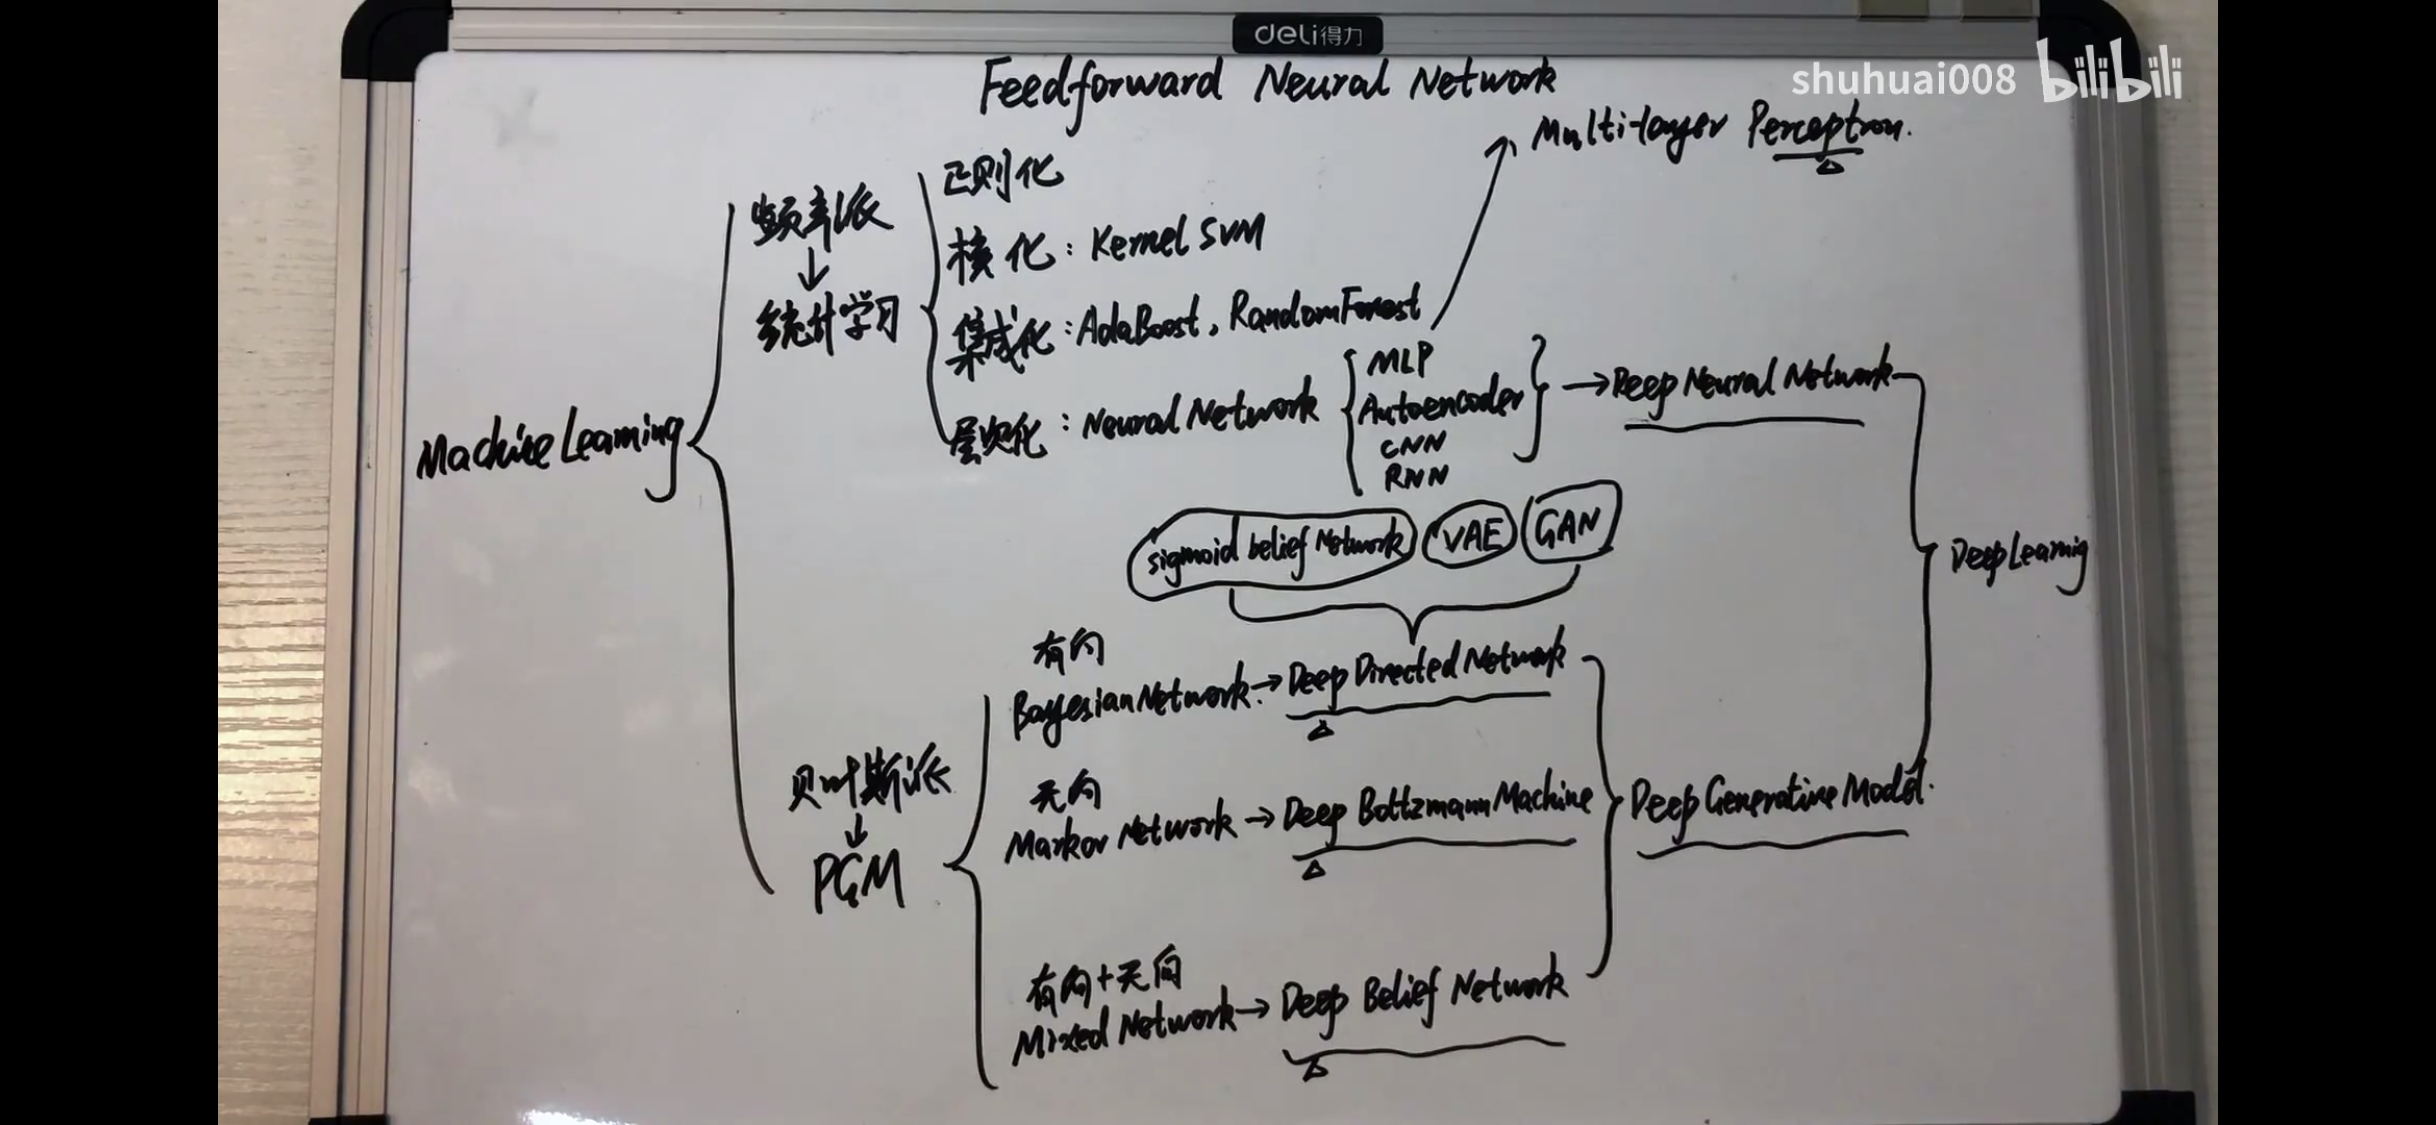 deli得力
shuhuai008 bilibili
Feedforward Neural Network
Multi-layer Perceptron.
Machine Learning
频率派
统计学习
正则化
核化：Kernel SVM
集成化：AdaBoost, RandomForest
层次化：Neural Network
MLP
Autoencoder
CNN
RNN
Deep Neural Network
sigmoid belief Network
VAE
GAN
Deep Learnig
贝叶斯派
PGM
有向
Bayesian Network
Deep Directed Network
无向
Markov Network
Deep Boltzmann Machine
有向+无向
Mixed Network
Deep Belief Network
Deep Generative Model.